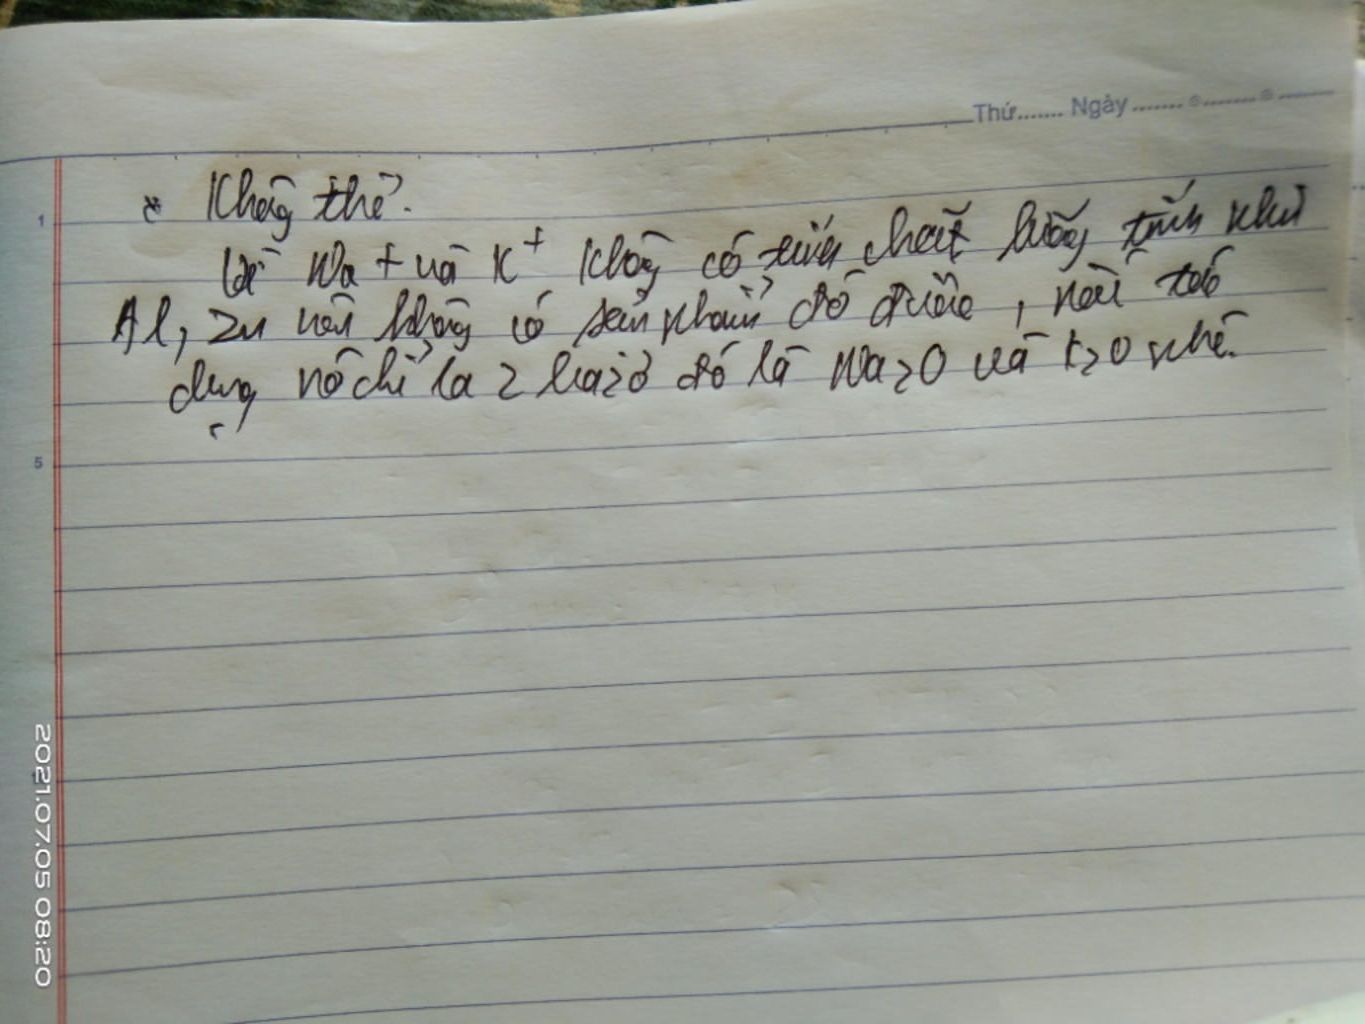 Thứ....... Ngày ....... ....... .......
* Không thể.
Vì Na+ và K+ không có tính chất lưỡng tính như
Al, Zn nên không có sản phẩm đó được, nếu tác
dụng nó chỉ là 2 bazơ đó là Na2O và K2O nhé.
1
5
2021.07.05 08:20